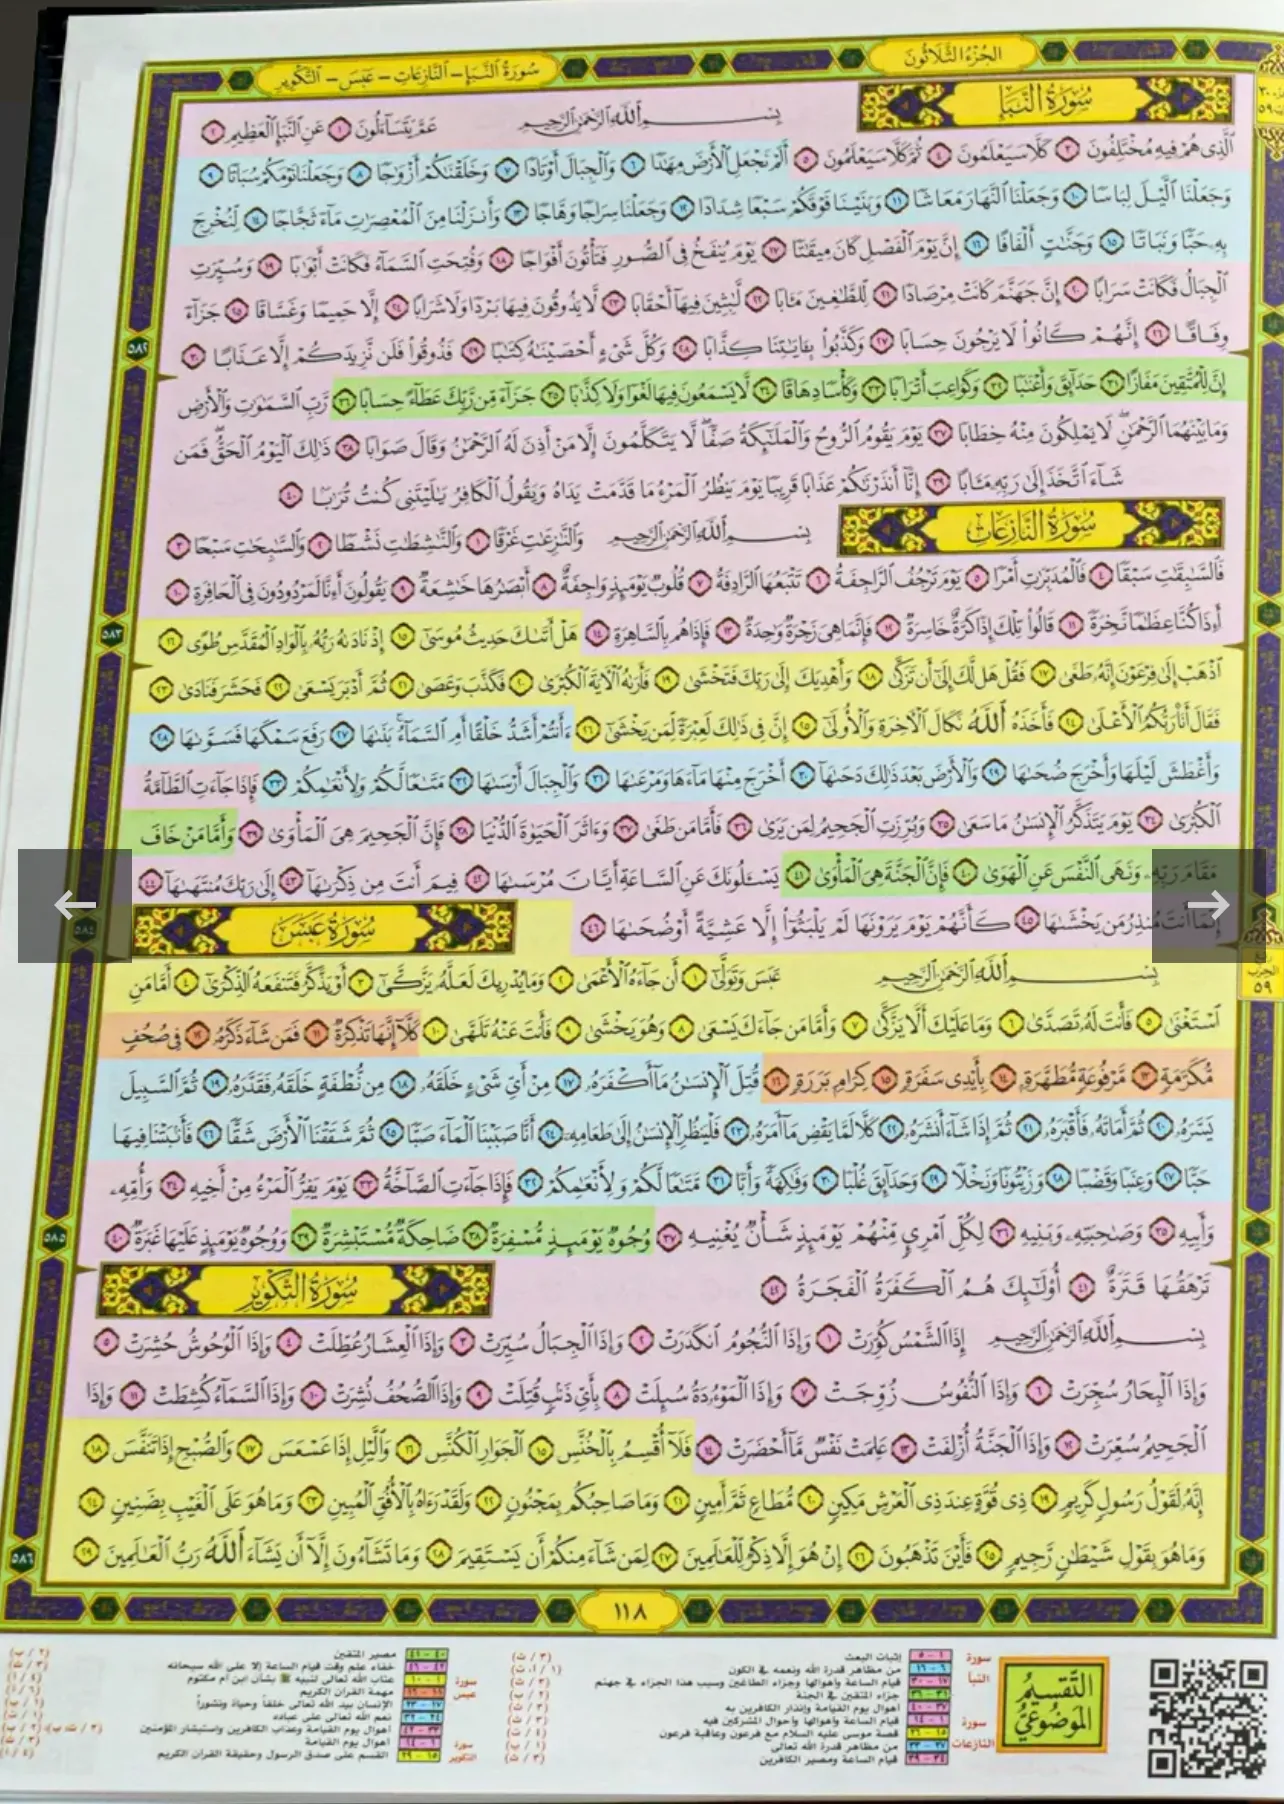 الجزء الثلاثون
سورة النبإ - النازعات - عبس - التكوير
سورة النبإ
بسم الله الرحمن الرحيم عم يتساءلون ١ عن النبإ العظيم ٢
الذي هم فيه مختلفون ٣ كلا سيعلمون ٤ ثم كلا سيعلمون ٥ ألم نجعل الأرض مهادا ٦ والجبال أوتادا ٧ وخلقناكم أزواجا ٨ وجعلنا نومكم سباتا ٩
وجعلنا الليل لباسا ١٠ وجعلنا النهار معاشا ١١ وبنينا فوقكم سبعا شدادا ١٢ وجعلنا سراجا وهاجا ١٣ وأنزلنا من المعصرات ماء ثجاجا ١٤ لنخرج
به حبا ونباتا ١٥ وجنات ألفافا ١٦ إن يوم الفصل كان ميقاتا ١٧ يوم ينفخ في الصور فتأتون أفواجا ١٨ وفتحت السماء فكانت أبوابا ١٩ وسيرت
الجبال فكانت سرابا ٢٠ إن جهنم كانت مرصادا ٢١ للطاغين مآبا ٢٢ لابثين فيها أحقابا ٢٣ لا يذوقون فيها بردا ولا شرابا ٢٤ إلا حميما وغساقا ٢٥ جزاء
وفاقا ٢٦ إنهم كانوا لا يرجون حسابا ٢٧ وكذبوا بآياتنا كذابا ٢٨ وكل شيء أحصيناه كتابا ٢٩ فذوقوا فلن نزيدكم إلا عذابا ٣٠
إن للمتقين مفازا ٣١ حدائق وأعنابا ٣٢ وكواعب أترابا ٣٣ وكأسا دهاقا ٣٤ لا يسمعون فيها لغوا ولا كذابا ٣٥ جزاء من ربك عطاء حسابا ٣٦ رب السماوات والأرض
وما بينهما الرحمن لا يملكون منه خطابا ٣٧ يوم يقوم الروح والملائكة صفا لا يتكلمون إلا من أذن له الرحمن وقال صوابا ٣٨ ذلك اليوم الحق فمن
شاء اتخذ إلى ربه مآبا ٣٩ إنا أنذرناكم عذابا قريبا يوم ينظر المرء ما قدمت يداه ويقول الكافر يا ليتني كنت ترابا ٤٠
سورة النازعات
بسم الله الرحمن الرحيم والنازعات غرقا ١ والناشطات نشطا ٢ والسابحات سبحا ٣
فالسابقات سبقا ٤ فالمدبرات أمرا ٥ يوم ترجف الراجفة ٦ تتبعها الرادفة ٧ قلوب يومئذ واجفة ٨ أبصارها خاشعة ٩ يقولون أءنا لمردودون في الحافرة ١٠
أءذا كنا عظاما نخرة ١١ قالوا تلك إذا كرة خاسرة ١٢ فإنما هي زجرة واحدة ١٣ فإذا هم بالساهرة ١٤ هل أتاك حديث موسى ١٥ إذ ناداه ربه بالواد المقدس طوى ١٦
اذهب إلى فرعون إنه طغى ١٧ فقل هل لك إلى أن تزكى ١٨ وأهديك إلى ربك فتخشى ١٩ فأراه الآية الكبرى ٢٠ فكذب وعصى ٢١ ثم أدبر يسعى ٢٢ فحشر فنادى ٢٣
فقال أنا ربكم الأعلى ٢٤ فأخذه الله نكال الآخرة والأولى ٢٥ إن في ذلك لعبرة لمن يخشى ٢٦ ءأنتم أشد خلقا أم السماء بناها ٢٧ رفع سمكها فسواها ٢٨
وأغطش ليلها وأخرج ضحاها ٢٩ والأرض بعد ذلك دحاها ٣٠ أخرج منها ماءها ومرعاها ٣١ والجبال أرساها ٣٢ متاعا لكم ولأنعامكم ٣٣ فإذا جاءت الطامة
الكبرى ٣٤ يوم يتذكر الإنسان ما سعى ٣٥ وبرزت الجحيم لمن يرى ٣٦ فأما من طغى ٣٧ وءاثر الحياة الدنيا ٣٨ فإن الجحيم هي المأوى ٣٩ وأما من خاف
مقام ربه ونهى النفس عن الهوى ٤٠ فإن الجنة هي المأوى ٤١ يسألونك عن الساعة أيان مرساها ٤٢ فيم أنت من ذكراها ٤٣ إلى ربك منتهاها ٤٤
إنما أنت منذر من يخشاها ٤٥ كأنهم يوم يرونها لم يلبثوا إلا عشية أو ضحاها ٤٦
سورة عبس
بسم الله الرحمن الرحيم عبس وتولى ١ أن جاءه الأعمى ٢ وما يدريك لعله يزكى ٣ أو يذكر فتنفعه الذكرى ٤ أما من
استغنى ٥ فأنت له تصدى ٦ وما عليك ألا يزكى ٧ وأما من جاءك يسعى ٨ وهو يخشى ٩ فأنت عنه تلهى ١٠ كلا إنها تذكرة ١١ فمن شاء ذكره ١٢ في صحف
مكرمة ١٣ مرفوعة مطهرة ١٤ بأيدي سفرة ١٥ كرام بررة ١٦ قتل الإنسان ما أكفره ١٧ من أي شيء خلقه ١٨ من نطفة خلقه فقدره ١٩ ثم السبيل
يسره ٢٠ ثم أماته فأقبره ٢١ ثم إذا شاء أنشره ٢٢ كلا لما يقض ما أمره ٢٣ فلينظر الإنسان إلى طعامه ٢٤ أنا صببنا الماء صبا ٢٥ ثم شققنا الأرض شقا ٢٦ فأنبتنا فيها
حبا ٢٧ وعنبا وقضبا ٢٨ وزيتونا ونخلا ٢٩ وحدائق غلبا ٣٠ وفاكهة وأبا ٣١ متاعا لكم ولأنعامكم ٣٢ فإذا جاءت الصاخة ٣٣ يوم يفر المرء من أخيه ٣٤ وأمه
وأبيه ٣٥ وصاحبته وبنيه ٣٦ لكل امرئ منهم يومئذ شأن يغنيه ٣٧ وجوه يومئذ مسفرة ٣٨ ضاحكة مستبشرة ٣٩ ووجوه يومئذ عليها غبرة ٤٠
ترهقها قترة ٤١ أولئك هم الكفرة الفجرة ٤٢
سورة التكوير
بسم الله الرحمن الرحيم إذا الشمس كورت ١ وإذا النجوم انكدرت ٢ وإذا الجبال سيرت ٣ وإذا العشار عطلت ٤ وإذا الوحوش حشرت ٥
وإذا البحار سجرت ٦ وإذا النفوس زوجت ٧ وإذا الموءودة سئلت ٨ بأي ذنب قتلت ٩ وإذا الصحف نشرت ١٠ وإذا السماء كشطت ١١ وإذا
الجحيم سعرت ١٢ وإذا الجنة أزلفت ١٣ علمت نفس ما أحضرت ١٤ فلا أقسم بالخنس ١٥ الجوار الكنس ١٦ والليل إذا عسعس ١٧ والصبح إذا تنفس ١٨
إنه لقول رسول كريم ١٩ ذي قوة عند ذي العرش مكين ٢٠ مطاع ثم أمين ٢١ وما صاحبكم بمجنون ٢٢ ولقد رءاه بالأفق المبين ٢٣ وما هو على الغيب بضنين ٢٤
وما هو بقول شيطان رجيم ٢٥ فأين تذهبون ٢٦ إن هو إلا ذكر للعالمين ٢٧ لمن شاء منكم أن يستقيم ٢٨ وما تشاءون إلا أن يشاء الله رب العالمين ٢٩
٥٨٢
٥٨٣
٥٨٤
٥٨٥
٥٨٦
الحزب
٥٩
١١٨
التقسيم
الموضوعي
سورة النبأ
١ - ٥ إثبات البعث
٦ - ١٦ من مظاهر قدرة الله ونعمه في الكون
١٧ - ٣٠ قيام الساعة وأهوالها وجزاء الطاغين وسبب هذا الجزاء في جهنم
٣١ - ٣٦ جزاء المتقين في الجنة
٣٧ - ٤٠ أهوال يوم القيامة وإنذار الكافرين به
سورة النازعات
١ - ١٤ قيام الساعة وأهوالها وأحوال المشركين فيه
١٥ - ٢٦ قصة موسى عليه السلام مع فرعون وعاقبة فرعون
٢٧ - ٣٣ من مظاهر قدرة الله تعالى
٣٤ - ٣٩ قيام الساعة ومصير الكافرين
٤٠ - ٤١ مصير المتقين
٤٢ - ٤٦ خفاء علم وقت قيام الساعة إلا على الله سبحانه
سورة عبس
١ - ١٠ عتاب الله تعالى لنبيه ﷺ بشأن ابن أم مكتوم
١١ - ١٦ مهمة القرآن الكريم
١٧ - ٢٣ الإنسان بيد الله تعالى خلقاً وحياة ونشوراً
٢٤ - ٣٢ نعم الله تعالى على عباده
٣٣ - ٤٢ أهوال يوم القيامة وعذاب الكافرين واستبشار المؤمنين
سورة التكوير
١ - ١٤ أهوال يوم القيامة
١٥ - ٢٩ القسم على صدق الرسول وحقيقة القرآن الكريم